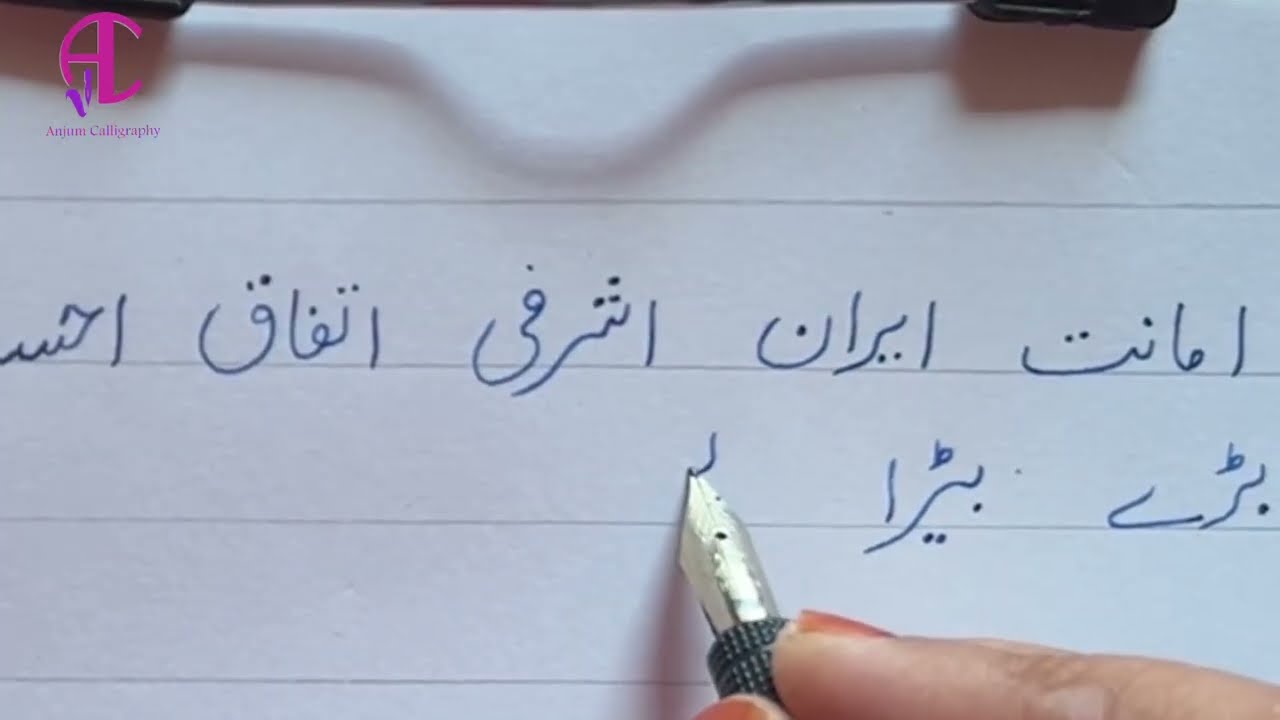 Anjum Calligraphy
امانت ایران اشرفی اتفاق
بڑے بیڑا